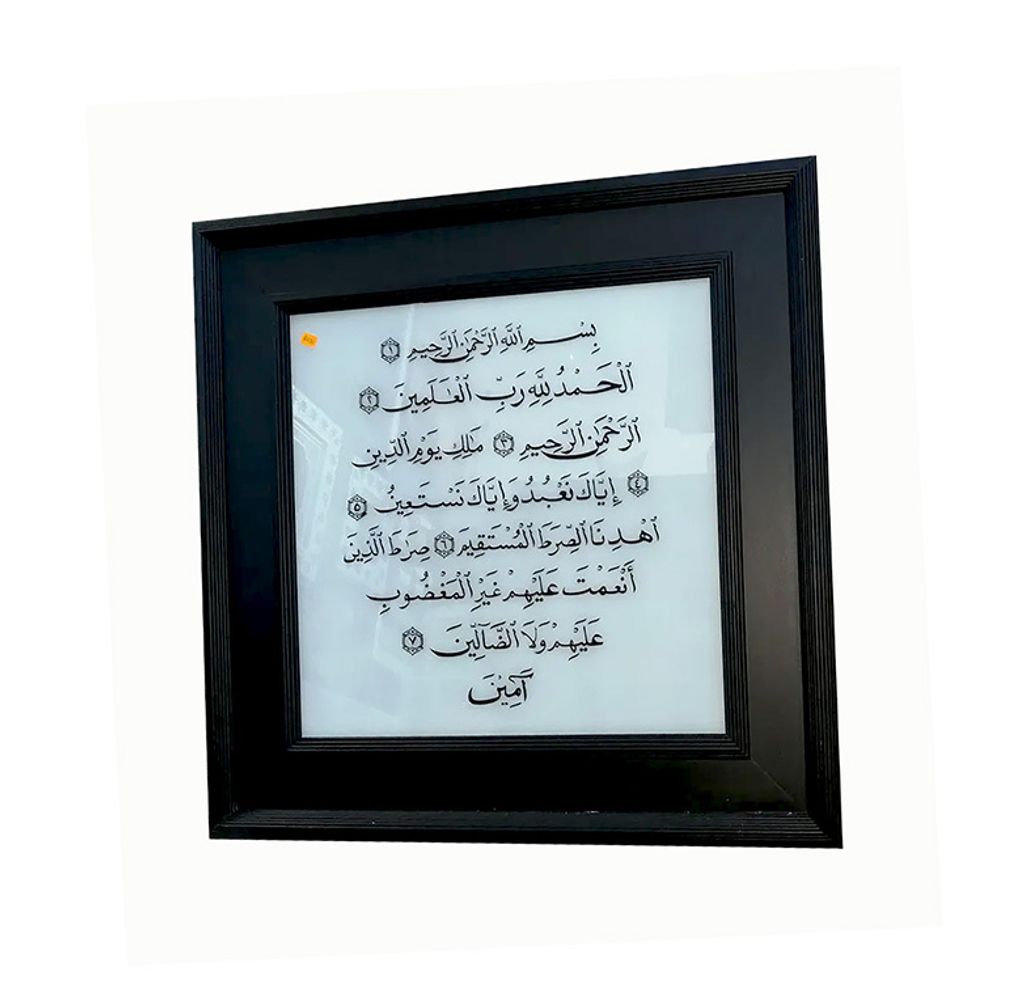 بِسْمِ ٱللَّهِ ٱلرَّحْمَٰنِ ٱلرَّحِيمِ ١
ٱلْحَمْدُ لِلَّهِ رَبِّ ٱلْعَٰلَمِينَ ٢
ٱلرَّحْمَٰنِ ٱلرَّحِيمِ ٣ مَٰلِكِ يَوْمِ ٱلدِّينِ
٤ إِيَّاكَ نَعْبُدُ وَإِيَّاكَ نَسْتَعِينُ ٥
ٱهْدِنَا ٱلصِّرَٰطَ ٱلْمُسْتَقِيمَ ٦ صِرَٰطَ ٱلَّذِينَ
أَنْعَمْتَ عَلَيْهِمْ غَيْرِ ٱلْمَغْضُوبِ
عَلَيْهِمْ وَلَا ٱلضَّآلِّينَ ٧
آمِيْنَ